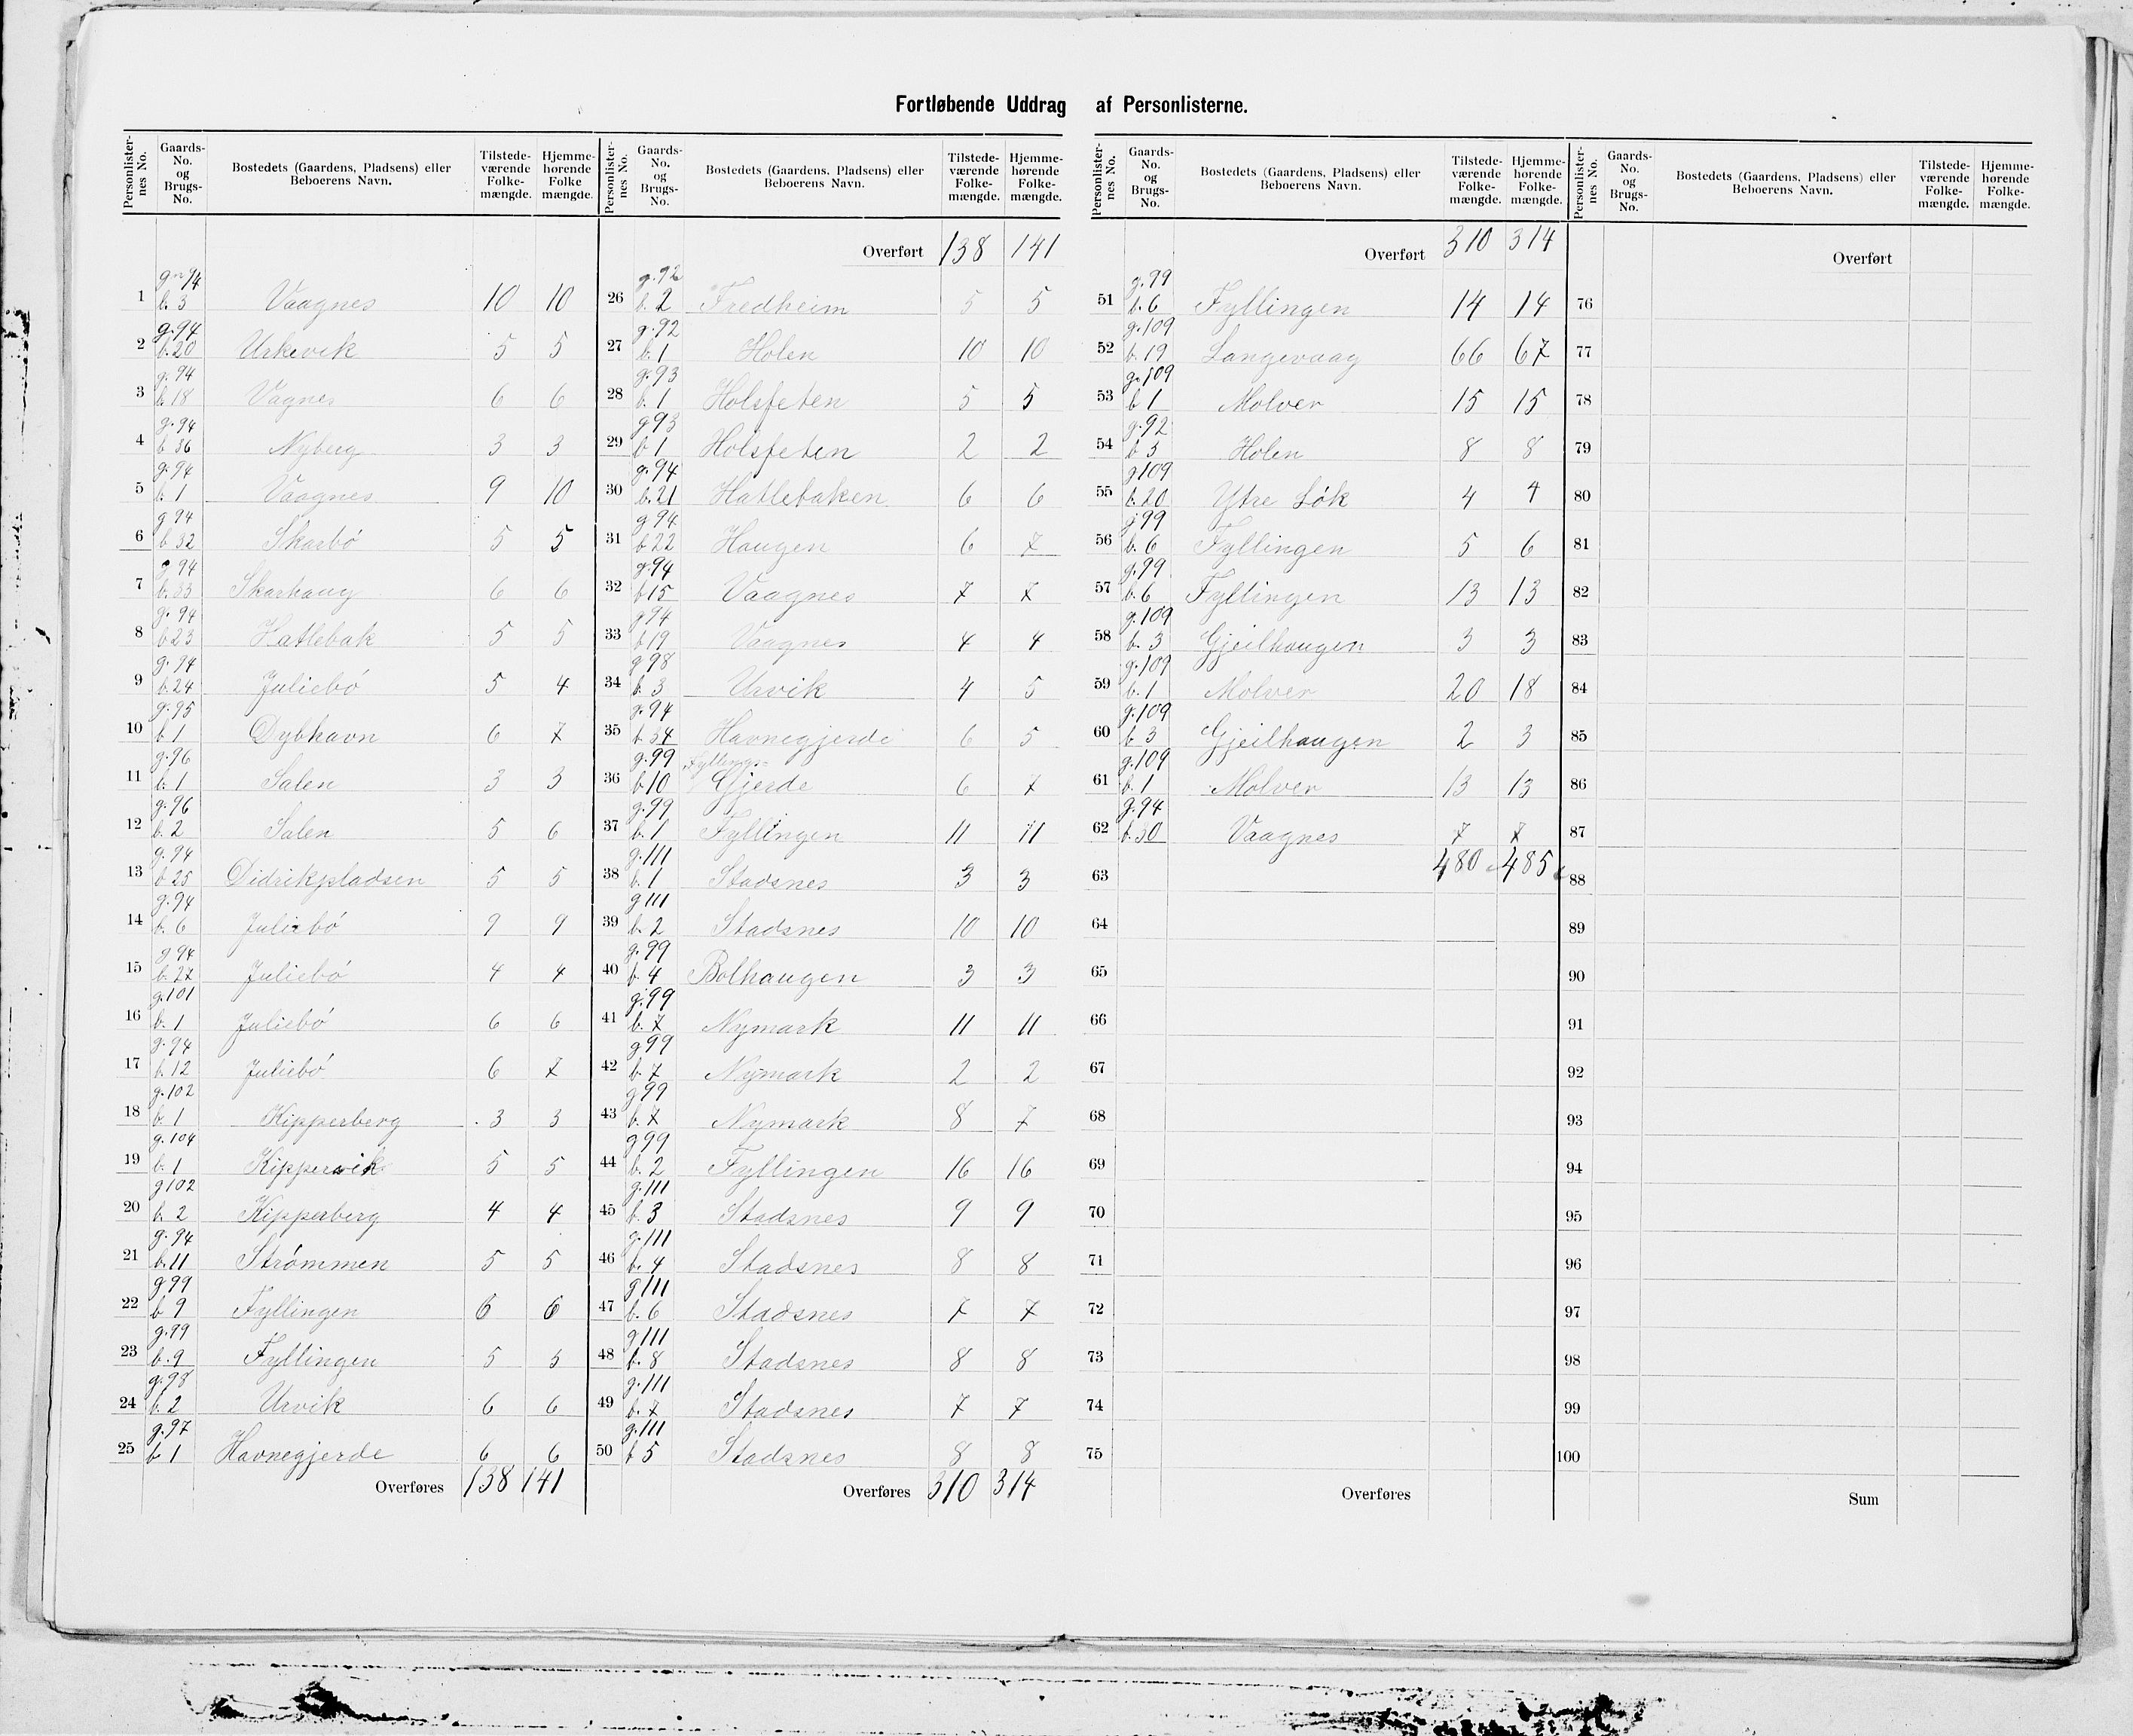 Fortløbende Uddrag af Personlisterne.
Personlisternes No. Gaards-No. og Brugs-No. Bostedets (Gaardens, Pladsens) eller Beboerens Navn. Tilstedeværende Folkemængde. Hjemmehørende Folkemængde.
1 gn 94 b. 3 Vaagnes 10 10
2 g. 94 b. 20 Urkevik 5 5
3 g. 94 b. 18 Vagnes 6 6
4 g. 94 b 36 Nyberg 3 3
5 g. 94 b. 1 Vaagnes 9 10
6 g 94 b 32 Skarbó 5 5
7 g 94 b. 33 Skarhaug 6 6
8 g. 94 b 23 Hatlebak 5 5
9 g. 94 b. 24 Juliebó 5 4
10 g. 95 b. 1 Dybhavn 6 7
11 g. 96 b. 1 Salen 3 3
12 g. 96 b. 2 Salen 5 6
13 g. 94 b 25 Didrikpladsen 5 5
14 g. 94 b. 6 Juliebó 9 9
15 g 94 b. 27 Juliebó 4 4
16 g. 101 b. 1 Juliebó 6 6
17 g. 94 b. 12 Juliebó 6 7
18 g. 102 b. 1 Kipperberg 3 3
19 g. 104 b. 1 Kippervik 5 5
20 g 102 b. 2 Kipperberg 4 4
21 g. 94 b. 11 Strómmen 5 5
22 g 99 b 9 Fyllingen 6 6
23 g. 99 b. 9 Fyllingen 5 5
24 g. 98 b. 2 Urvik 6 6
25 g. 97 b 1 Havnegjerde 6 6
Overføres 138 141
Personlisternes No. Gaards-No. og Brugs-No. Bostedets (Gaardens, Pladsens) eller Beboerens Navn. Tilstedeværende Folkemængde. Hjemmehørende Folkemængde.
Overført 138 141
26 g. 92 b. 2 Fredheim 5 5
27 g. 92 b. 1 Holen 10 10
28 g. 93 b. 1 Holsfeten 5 5
29 g 93 b 1 Holsfeten 2 2
30 g. 94 b. 21 Hatlebaken 6 6
31 g 94 b 22 Haugen 6 7
32 g. 94 b 15 Vaagnes 7 7
33 g 94 b 19 Vaagnes 4 4
34 g 98 b. 3 Urvik 4 5
35 g. 94 b. 34 Havnegjerde 6 5
36 g. 99 b 10 Fyllings- Gjerde 6 7
37 g. 99 b. 1 Fyllingen 11 11
38 g. 111 b. 1 Stadsnes 3 3
39 g 111 b. 2 Stadsnes 10 10
40 g. 99 b. 4 Bolhaugen 3 3
41 g. 99 b. 7 Nymark 11 11
42 g. 99 b. 7 Nymark 2 2
43 g 99 b. 7 Nymark 8 7
44 g 99 b. 2 Fyllingen 16 16
45 g. 111 b. 3 Stadsnes 9 9
46 g. 111 b. 4 Stadsnes 8 8
47 g 111 b. 6 Stadsnes 7 7
48 g 111 b. 8 Stadsnes 8 8
49 g. 111 b. 7 Stadsnes 7 7
50 g. 111 b 5 Stadsnes 8 8
Overføres 310 314
Personlisternes No. Gaards-No. og Brugs-No. Bostedets (Gaardens, Pladsens) eller Beboerens Navn. Tilstedeværende Folkemængde. Hjemmehørende Folkemængde.
Overført 310 314
51 g. 99 b. 6 Fyllingen 14 14
52 g. 109 b. 19 Langevaag 66 67
53 g. 109 b 1 Molver 15 15
54 g. 92 b 3 Holen 8 8
55 g 109 b. 20 Ytre Lók 4 4
56 g 99 b. 6 Fyllingen 5 6
57 g. 99 b. 6 Fyllingen 13 13
58 g. 109 b. 3 Gjeilhaugen 3 3
59 g. 109 b. 1 Molver 20 18
60 g. 109 b 3 Gjeilhaugen 2 3
61 g. 109 b. 1 Molver 13 13
62 g. 94 b. 30 Vaagnes 7 7
63 480 485
64
65
66
67
68
69
70
71
72
73
74
75
Overføres
Personlisternes No. Gaards-No. og Brugs-No. Bostedets (Gaardens, Pladsens) eller Beboerens Navn. Tilstedeværende Folkemængde. Hjemmehørende Folkemængde.
Overført
76
77
78
79
80
81
82
83
84
85
86
87
88
89
90
91
92
93
94
95
96
97
98
99
100
Sum